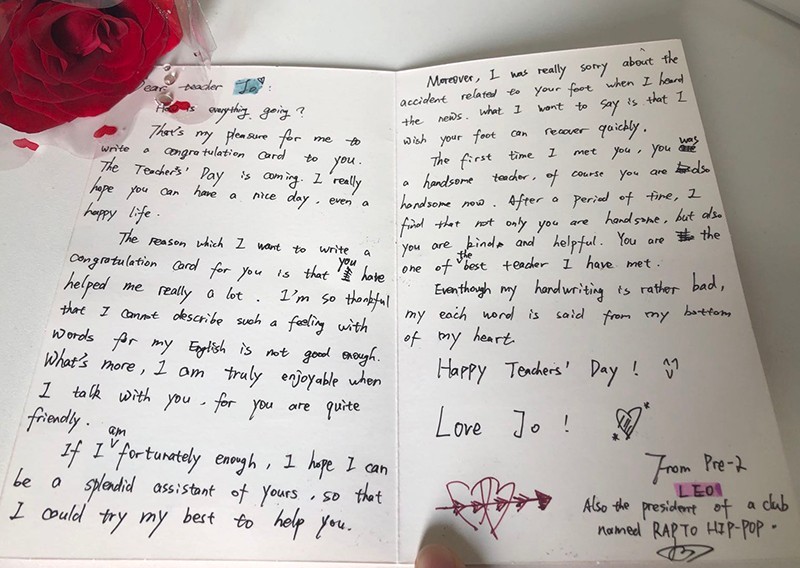 Dear teacher Jo:
How is everything going?
That's my pleasure for me to
write a congratulation card to you.
The Teachers' Day is coming. I really
hope you can have a nice day, even a
happy life.
The reason which I want to write a
congratulation card for you is that you have
helped me really a lot. I'm so thankful
that I cannot describe such a feeling with
words for my English is not good enough.
What's more, I am truly enjoyable when
I talk with you, for you are quite
friendly.
If I am fortunately enough, I hope I can
be a splendid assistant of yours, so that
I could try my best to help you.
Moreover, I was really sorry about the
accident related to your foot when I heard
the news. What I want to say is that I
wish your foot can recover quickly.
The first time I met you, you was
a handsome teacher, of course you are also
handsome now. After a period of time, I
find that not only you are handsome, but also
you are kind and helpful. You are the
one of the best teacher I have met.
Eventhough my handwriting is rather bad,
my each word is said from my bottom
of my heart.
Happy Teachers' Day! ^^
Love Jo!
From Pre-2
LEO
Also the president of a club
named RAPTO HIP-POP.